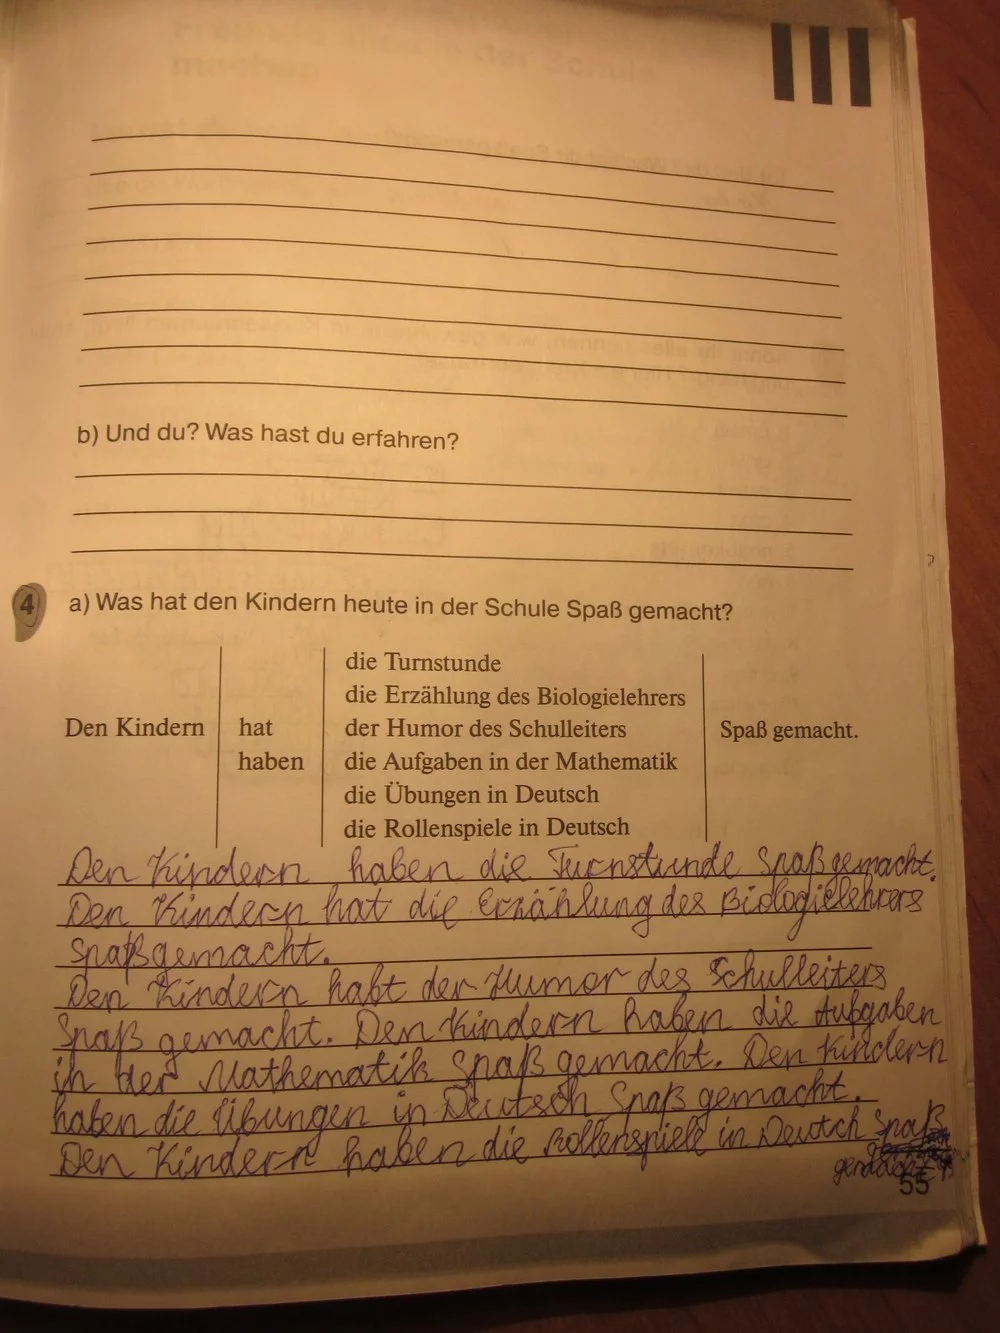 b) Und du? Was hast du erfahren?
4
a) Was hat den Kindern heute in der Schule Spaß gemacht?
die Turnstunde
die Erzählung des Biologielehrers
Den Kindern hat der Humor des Schulleiters Spaß gemacht.
haben die Aufgaben in der Mathematik
die Übungen in Deutsch
die Rollenspiele in Deutsch
Den Kindern haben die Turnstunde Spaß gemacht.
Den Kindern hat die Erzählung des Biologielehrers
Spaß gemacht.
Den Kindern der Humor des Schulleiters
Spaß gemacht. Den Kindern haben die Aufgaben
in der Mathematik Spaß gemacht. Den Kindern
haben die Übungen in Deutsch Spaß gemacht.
Den Kindern haben die Rollenspiele in Deutch Spaß
gemacht
55